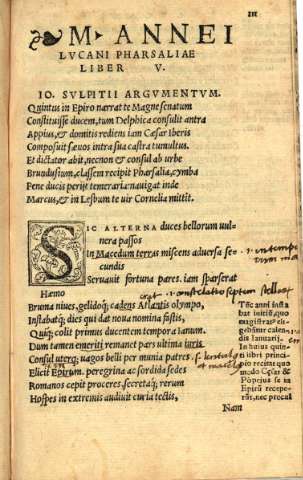 III
M. ANNEI
LVCANI PHARSALIAE
LIBER V.
IO. SVLPITII ARGVMENTVM.
Quintus in Epiro narrat te Magne senatum
Constituisse ducem, tum Delphica consulit antra
Appius, & domitis rediens iam Cæsar Iberis
Composuit sæuos intra sua castra tumultus.
Et dictator abit, necnon & consul ab urbe
Brundusium, classem recipit Pharsalia, cymba
Pene ducis perijt temeraria nauigat inde
Marcus, & in Lesbum te uir Cornelia mittit.
SIC ALTERNA duces bellorum uul-
nera passos
In Macedum terras miscens aduersa se-
cundis
Seruauit fortuna pares. iam sparserat
Hæmo
Bruma niues, gelidoq; cadens Atlantis olympo,
Instabatq; dies qui dat noua nomina fastis,
Quiq; colit primus ducentem tempora Ianum.
Dum tamen emeriti remanet pars ultima iuris
Consul uterq; uagos belli per munia patres
Elicit Epirum. peregrina ac sordida sedes
Romanos cepit proceres, secretaq; rerum
Hospes in extremis audiuit curia tectis,
Nam
constellatio septem stellarum
Tūc anni insta
bat initiū, quo
magistrat
gebātur calen
dis Ianuarij.
In huius quin-
ti libri princi-
pio recitat quo
modo Cæsar &
Pōpeius se in
Epirū recepe-
rint, nec procul